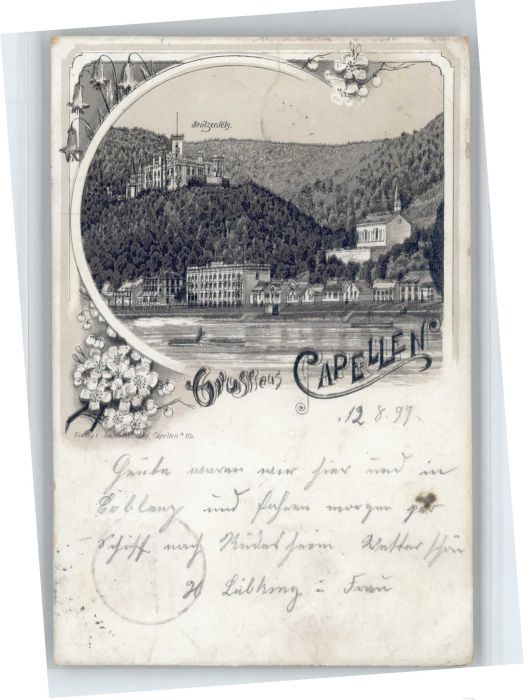 Stolzenfels.
Gruss aus CAPELLEN
12.8.99.
Verlag v. Capellen a. Rh.
Heute waren wir hier und in
Coblenz und fahren morgen per
Schiff nach Rüdesheim. Wetter schön
Lübking u Frau